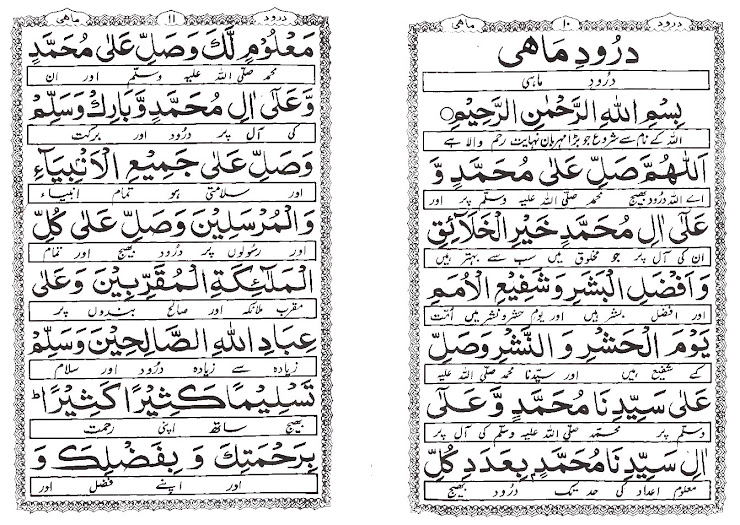 درود
۱۰
ماهی
درُودِ مَاهی
درُودِ ماہی
بِسْمِ اللهِ الرَّحْمٰنِ الرَّحِیْمِ
اللہ کے نام سے شروع جو بڑا مہربان نہایت رحم والا ہے
اَللّٰهُمَّ صَلِّ عَلٰی مُحَمَّدٍ وَّ
اے اللہ درُود بھیج محمد صلّی اللہ علیہ وسلّم پر اور
عَلٰٓی اٰلِ مُحَمَّدٍ خَیْرِ الْخَلَآئِقِ
ان کی آل پر جو مخلوق میں سب سے بہتر ہیں
وَ اَفْضَلِ الْبَشَرِ وَ شَفِیْعِ الْاُمَمِ
اور افضل بشر ہیں اور یوم حشر و نشر میں اُمّت
یَوْمَ الْحَشْرِ وَ النَّشْرِ وَصَلِّ
کے شفیع ہیں اور سیّدنا محمد صلّی اللہ علیہ
عَلٰی سَیِّدِنَا مُحَمَّدٍ وَّ عَلٰٓی
وسلّم پر محمّد صلّی اللہ علیہ وسلّم کی آل پر
اٰلِ سَیِّدِنَا مُحَمَّدٍ بِعَدَدِ کُلِّ
معلوم اعداد کی حد تک درُود بھیج
درود
۱۱
ماهی
مَعْلُوْمٍ لَّكَ وَصَلِّ عَلٰی مُحَمَّدٍ
محمد صلّی اللہ علیہ وسلّم اور ان
وَّ عَلٰٓی اٰلِ مُحَمَّدٍ وَّ بَارِكْ وَسَلِّمْ
کی آل پر درُود اور برکت
وَصَلِّ عَلٰی جَمِیْعِ الْاَنْبِیَآءِ
اور سلامتی ہو تمام انبیاء
وَالْمُرْسَلِیْنَ وَصَلِّ عَلٰی کُلِّ
اور رسُولوں پر درُود بھیج اور تمام
الْمَلٰٓئِکَةِ الْمُقَرَّبِیْنَ وَعَلٰی
مقرب ملائکہ اور صالح بندوں پر
عِبَادِ اللهِ الصَّالِحِیْنَ وَسَلِّمْ
زیادہ سے زیادہ درُود اور سلام
تَسْلِیْمًا کَثِیْرًا کَثِیْرًا ط
بھیج ساتھ اپنی رحمت
بِرَحْمَتِكَ وَ بِفَضْلِكَ وَ
اور اپنے فضل اور